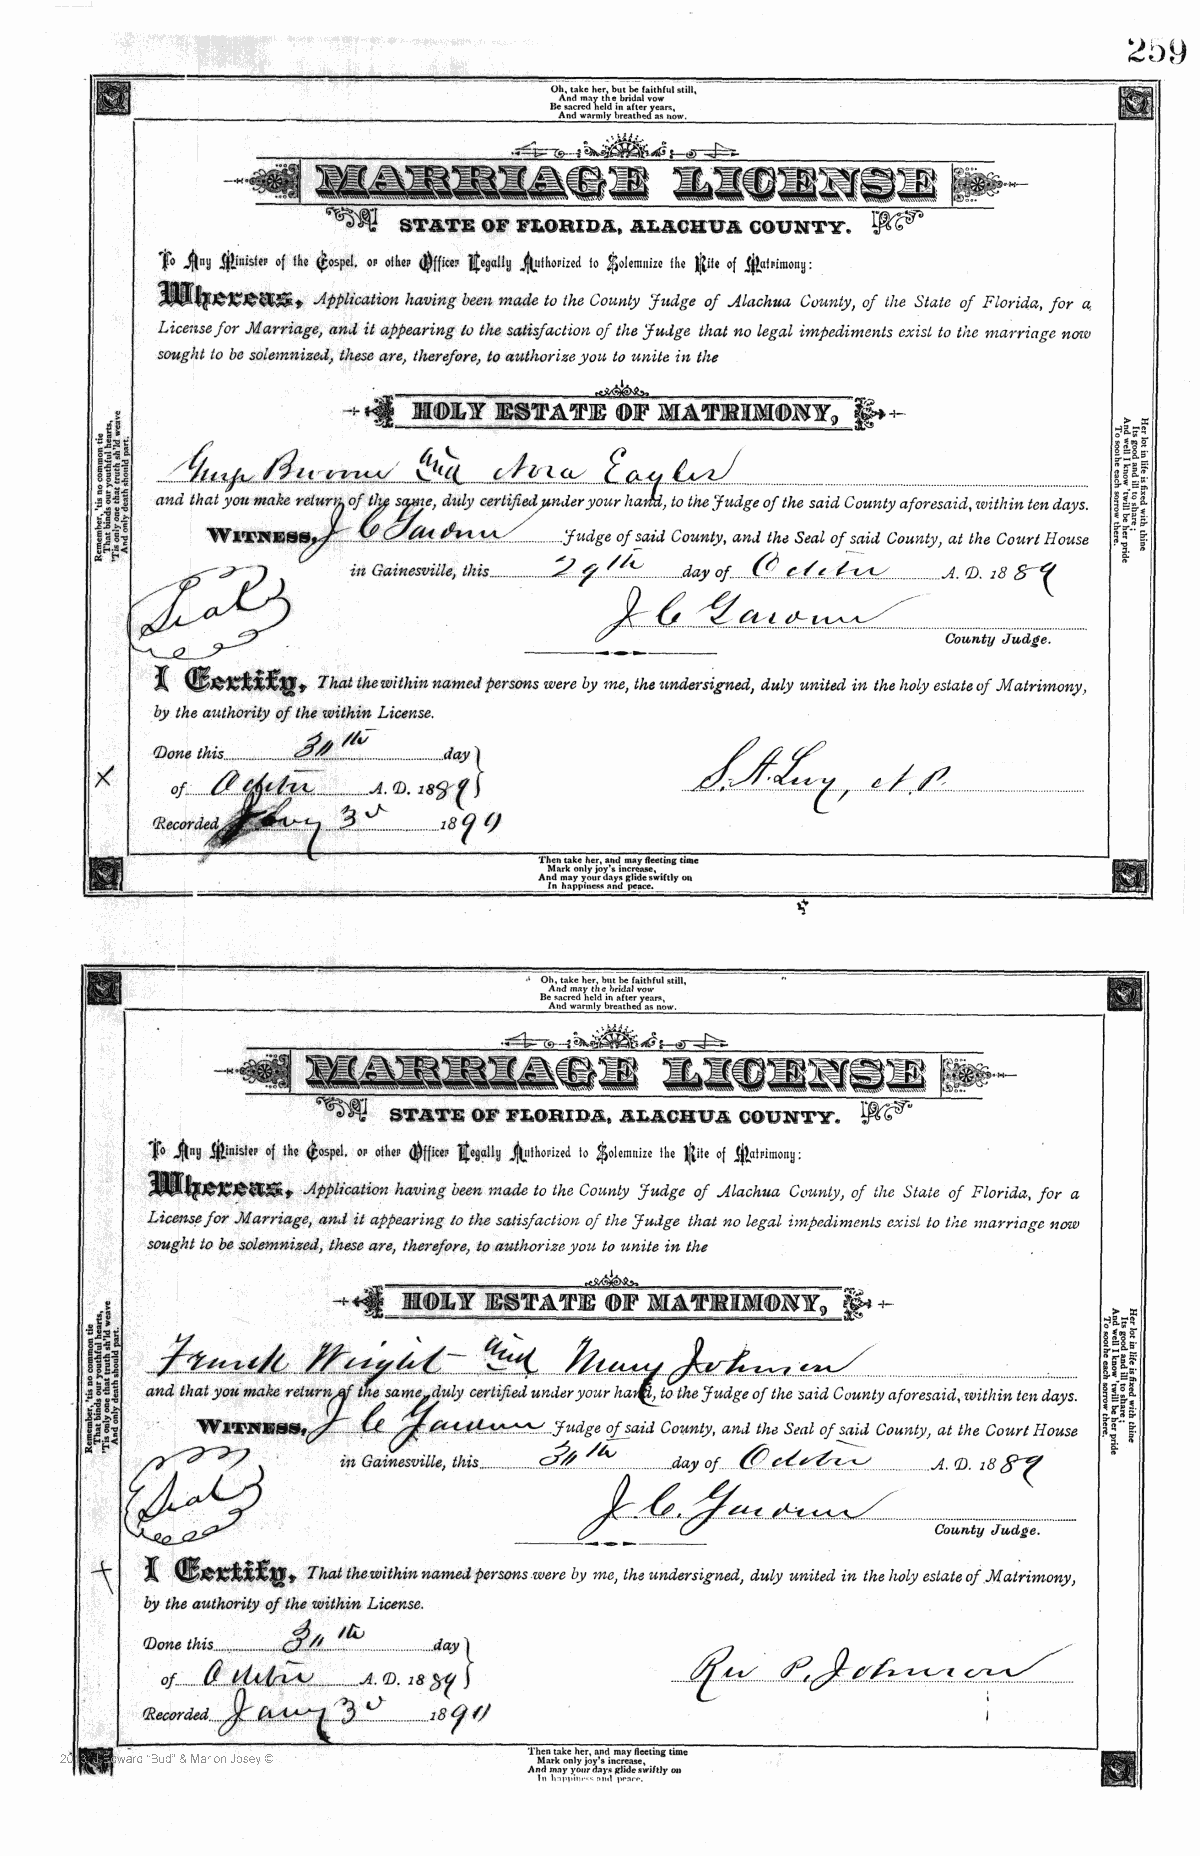 259
Oh, take her, but be faithful still,
And may the bridal vow
Be sacred held in after years,
And warmly breathed as now.
MARRIAGE LICENSE
STATE OF FLORIDA, ALACHUA COUNTY.
To Any Minister of the Gospel, or other Officer Legally Authorized to Solemnize the Rite of Matrimony:
Whereas, Application having been made to the County Judge of Alachua County, of the State of Florida, for a
License for Marriage, and it appearing to the satisfaction of the Judge that no legal impediments exist to the marriage now
sought to be solemnized, these are, therefore, to authorize you to unite in the
HOLY ESTATE OF MATRIMONY,
and Nora
and that you make return of the same, duly certified under your hand, to the Judge of the said County aforesaid, within ten days.
WITNESS, J C Judge of said County, and the Seal of said County, at the Court House
in Gainesville, this 29th day of October A. D. 1889
Seal
J C
County Judge.
I Certify, That the within named persons were by me, the undersigned, duly united in the holy estate of Matrimony,
by the authority of the within License.
Done this 30th day
of October A. D. 1889
S. A. , N. P.
X
Recorded Jany 3d 1890
Then take her, and may fleeting time
Mark only joy's increase,
And may your days glide swiftly on
In happiness and peace.
Remember, 'tis no common tie
That binds our youthful hearts,
'Tis only one that truth sh'ld weave
And only death should part.
Her lot in life is fixed with thine
Its good and ill to share;
And well I know 'twill be her pride
To soothe each sorrow there.
Oh, take her, but be faithful still,
And may the bridal vow
Be sacred held in after years,
And warmly breathed as now.
MARRIAGE LICENSE
STATE OF FLORIDA, ALACHUA COUNTY.
To Any Minister of the Gospel, or other Officer Legally Authorized to Solemnize the Rite of Matrimony:
Whereas, Application having been made to the County Judge of Alachua County, of the State of Florida, for a
License for Marriage, and it appearing to the satisfaction of the Judge that no legal impediments exist to the marriage now
sought to be solemnized, these are, therefore, to authorize you to unite in the
HOLY ESTATE OF MATRIMONY,
Frank Wright and Mary Johnson
and that you make return of the same, duly certified under your hand, to the Judge of the said County aforesaid, within ten days.
WITNESS, J C Judge of said County, and the Seal of said County, at the Court House
in Gainesville, this 30th day of October A. D. 1889
Seal
J. C.
County Judge.
I Certify, That the within named persons were by me, the undersigned, duly united in the holy estate of Matrimony,
by the authority of the within License.
Done this 30th day
of October A. D. 1889
Rev P. Johnson
Recorded Jany 3d 1890
Then take her, and may fleeting time
Mark only joy's increase,
And may your days glide swiftly on
In happiness and peace.
Remember, 'tis no common tie
That binds our youthful hearts,
'Tis only one that truth sh'ld weave
And only death should part.
Her lot in life is fixed with thine
Its good and ill to share;
And well I know 'twill be her pride
To soothe each sorrow there.
"Bud" & Marion Josey ©